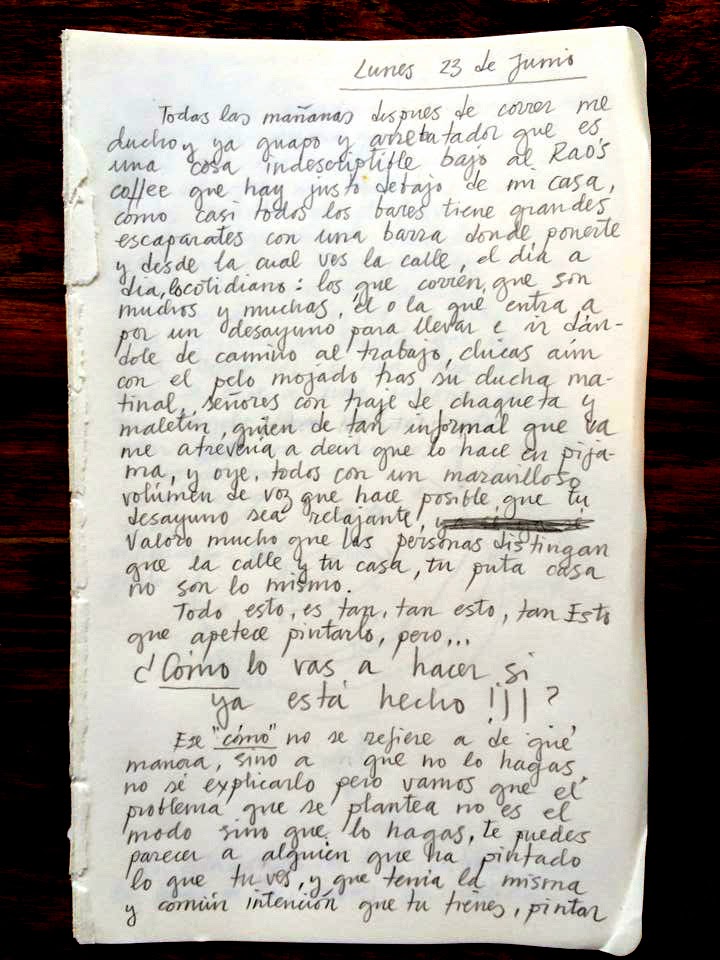 Lunes 23 de Junio
Todas las mañanas despues de correr me
ducho y ya guapo y arrebatador que es
una cosa indescriptible bajo al Rao's
coffee que hay justo debajo de mi casa,
como casi todos los bares tiene grandes
escaparates con una barra donde ponerte
y desde la cual ves la calle, el día a
dia, lo cotidiano: los que corren, que son
muchos y muchas, el o la que entra a
por un desayuno para llevar e ir dán-
dole de camino al trabajo, chicas aún
con el pelo mojado tras su ducha ma-
tinal, señores con traje de chaqueta y
maletín, quien de tan informal que va
me atrevería a decir que lo hace en pija-
ma, y oye, todos con un maravilloso
volúmen de voz que hace posible que tu
desayuno sea relajante,
Valoro mucho que las personas distingan
que la calle y tu casa, tu puta casa
no son lo mismo.
Todo esto, es tan, tan esto, tan Esto
que apetece pintarlo, pero...
¿Cómo lo vas a hacer si
ya está hecho !!!?
Ese "cómo" no se refiere a de qué
manera, sino a que no lo hagas,
no sé explicarlo pero vamos que el
problema que se plantea no es el
modo sino que lo hagas, te puedes
parecer a alguien que ha pintado
lo que tu ves, y que tenia la misma
y común intención que tu tienes, pintar